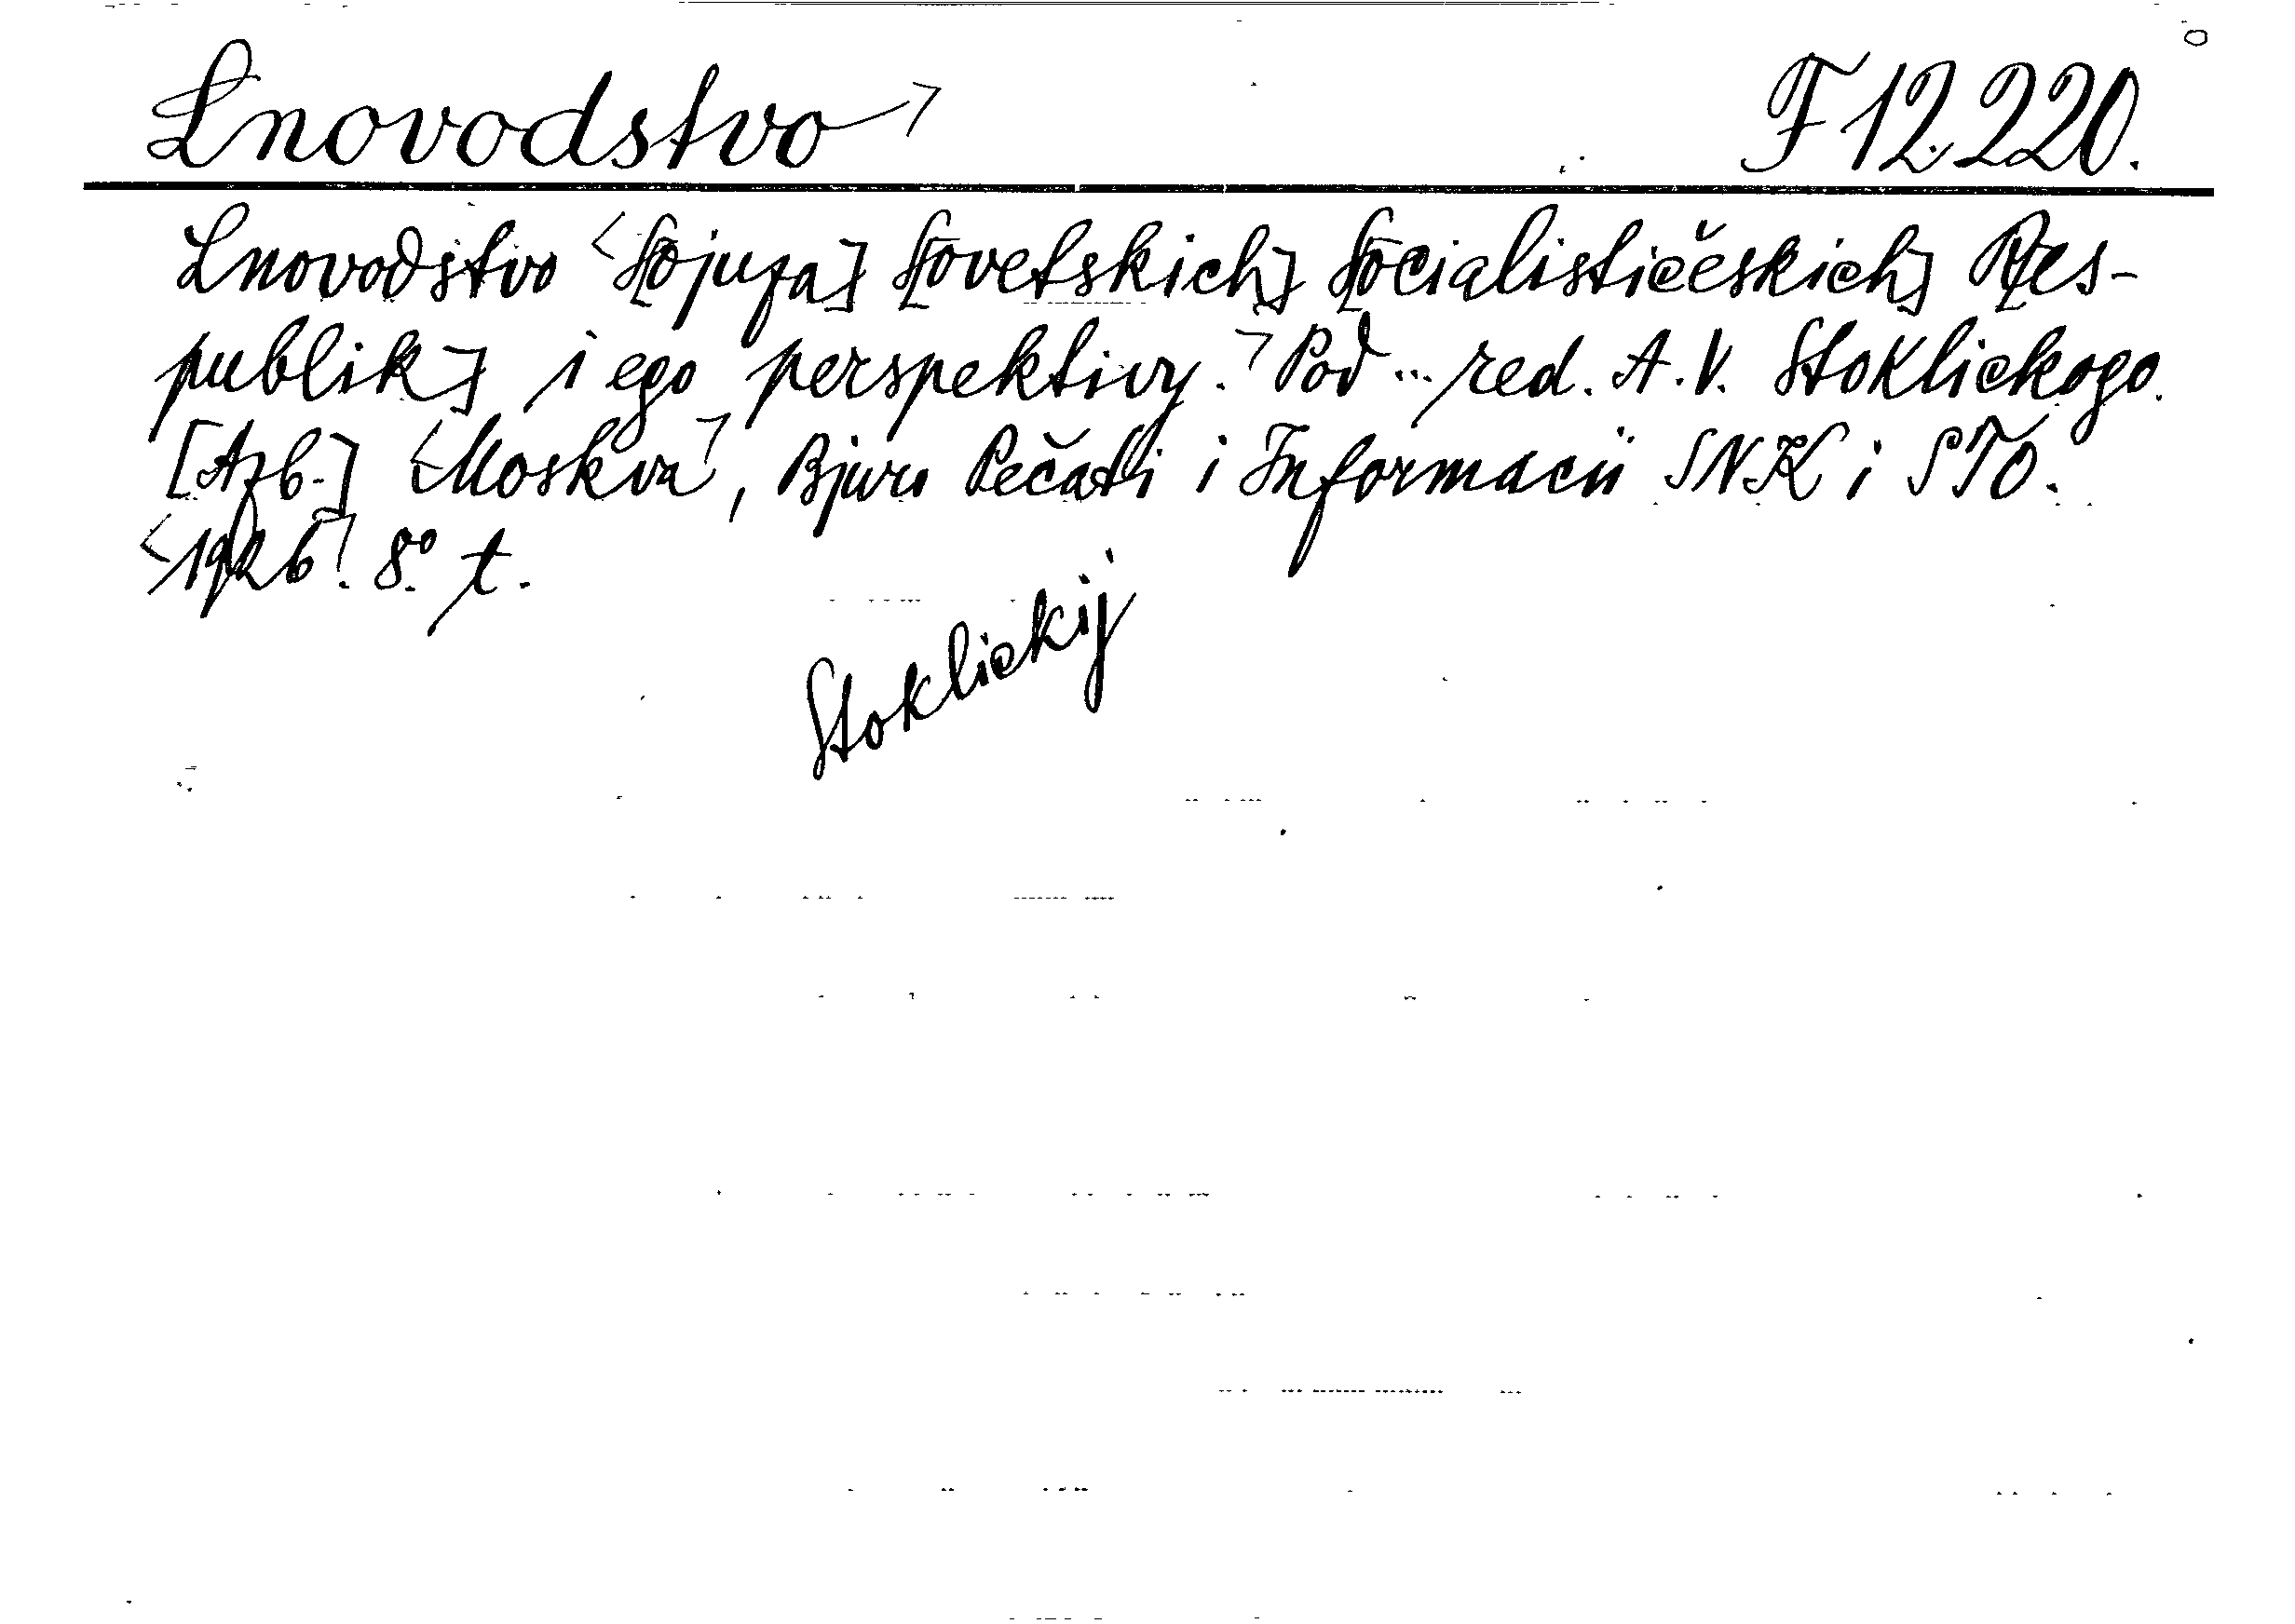 Lnovodstvo ⌝ F 12.220.
Lnovodstvo <S[ojuza] S[ovetskich] S[ocialističeskich] R[es-
publik] i ego perspektivy.⌝ Pod ... red. A. V. Stoklickogo.
[Azb.] <Moskva⌝, Bjuro Pečati i Informacii SNK i STO.
<1926⌝. 8º. t.
Stoklickij